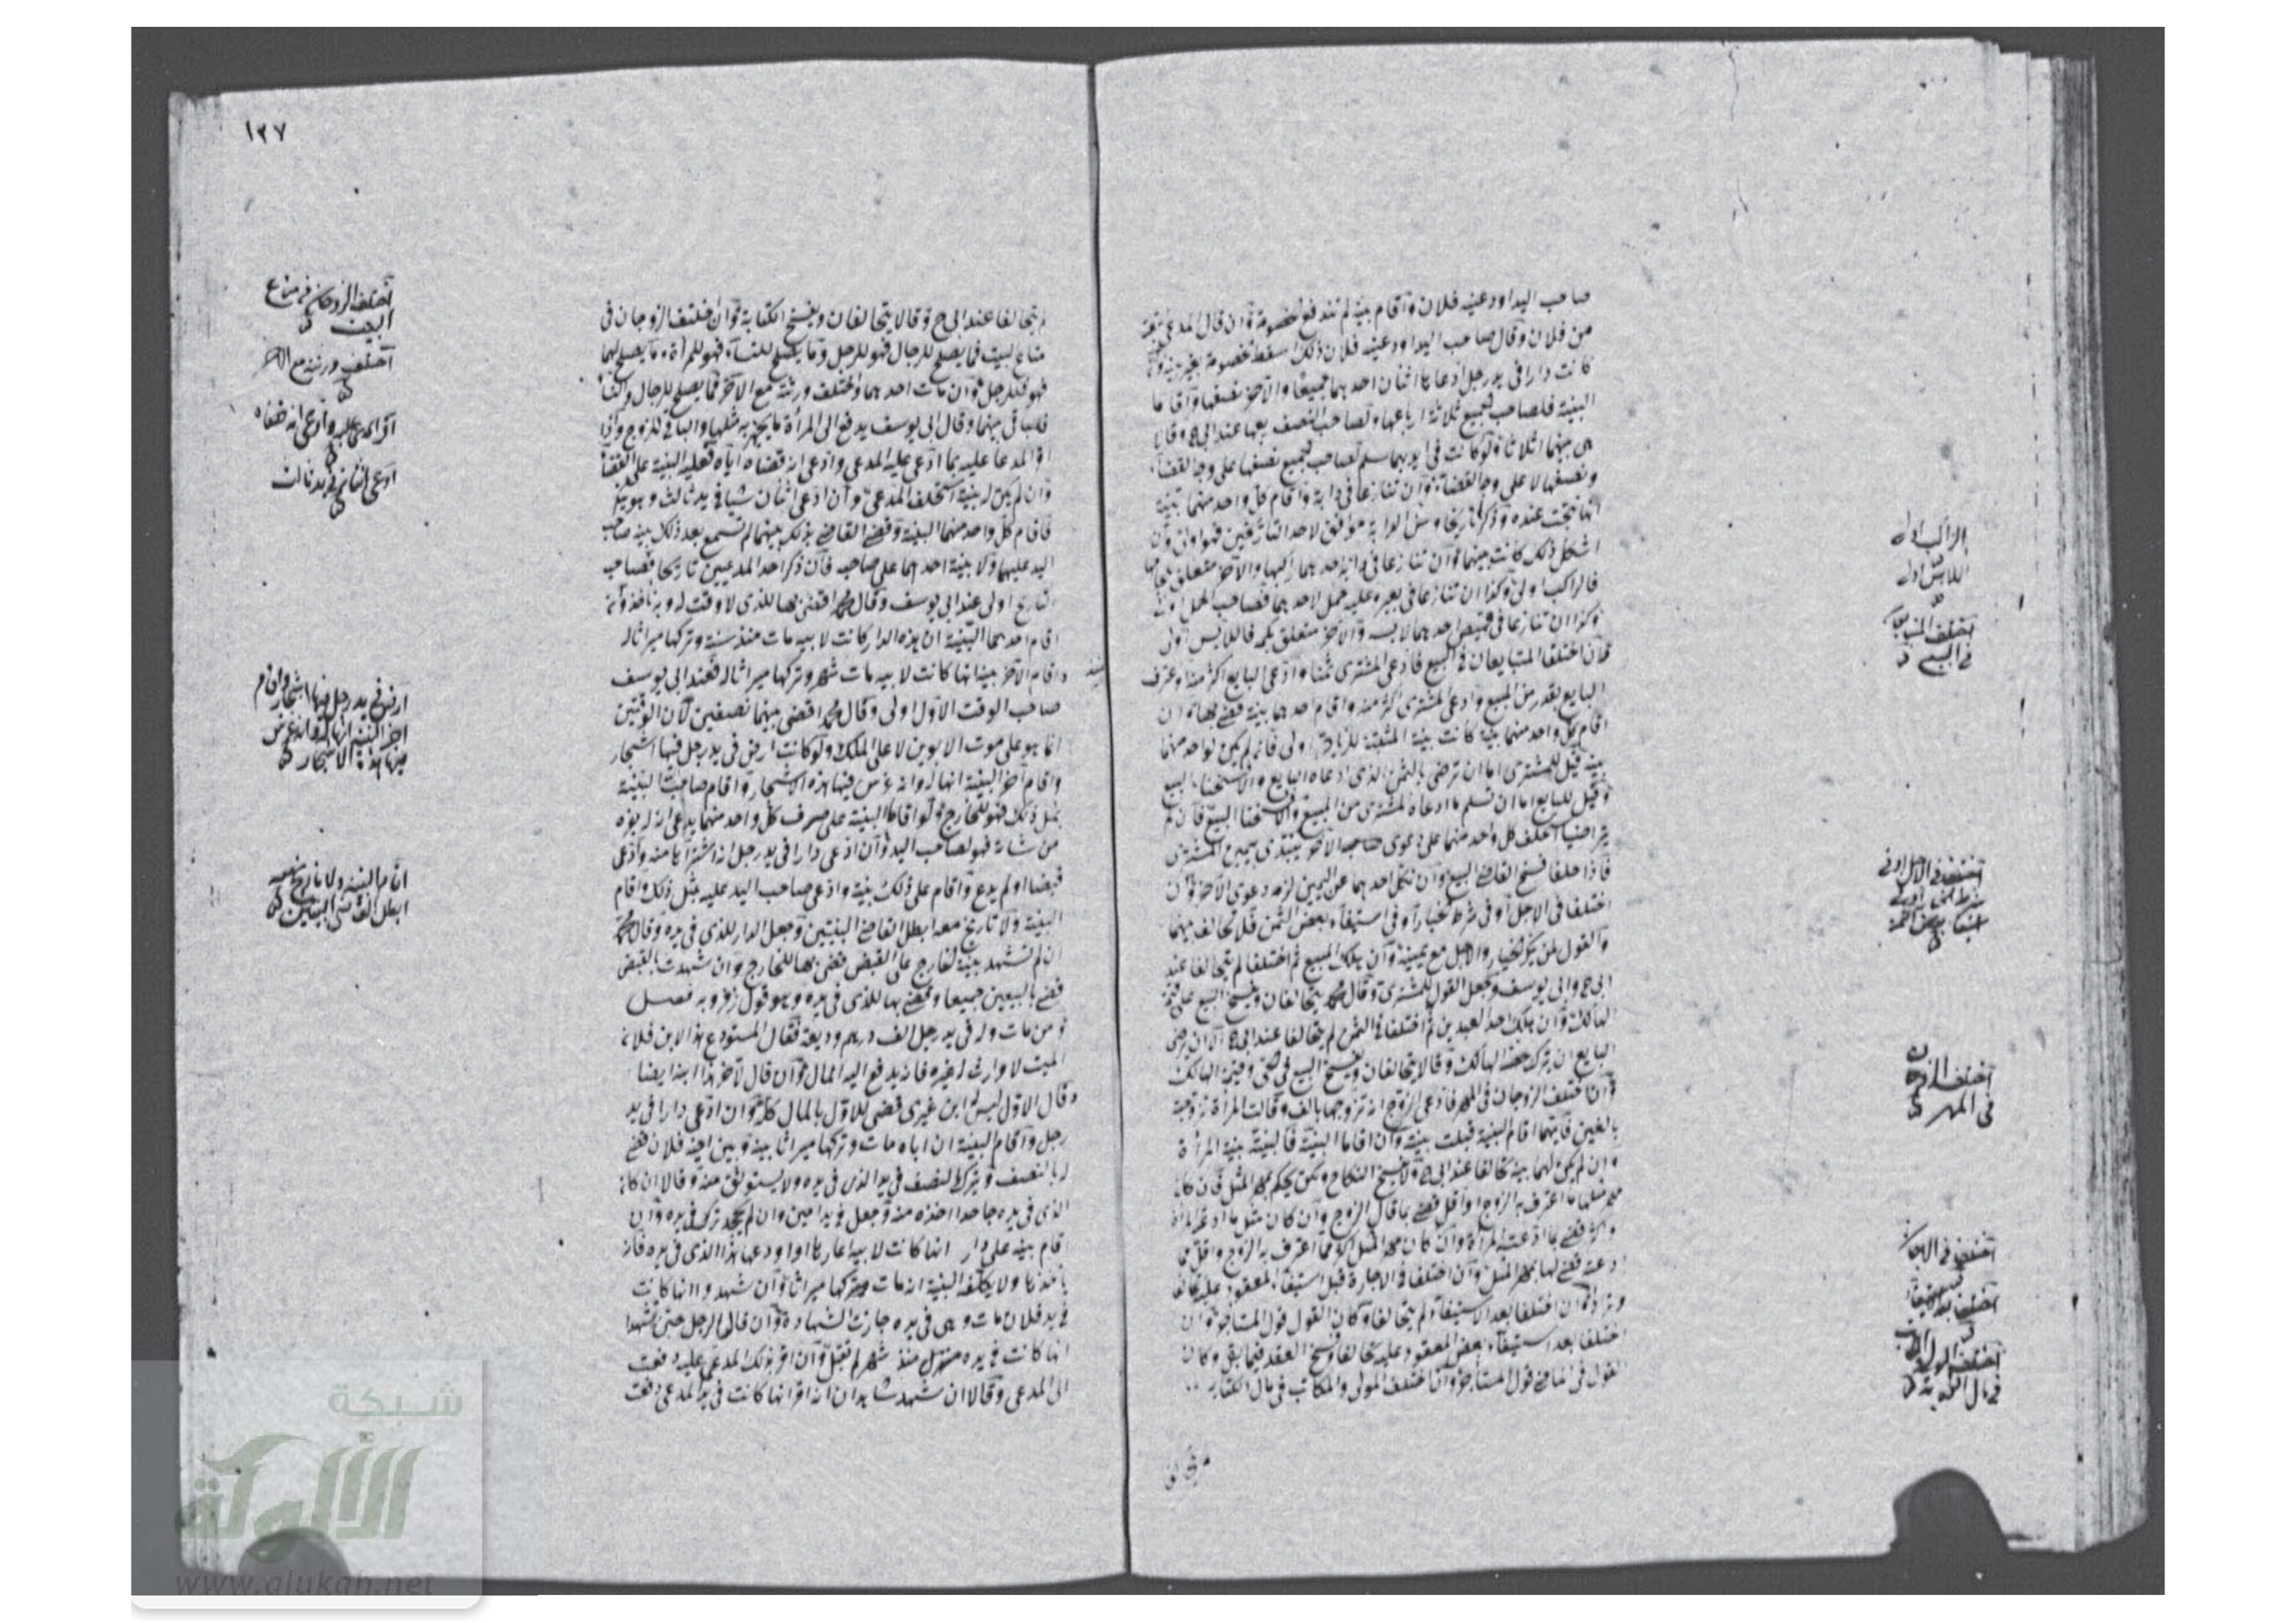 صاحب اليد اودعنيه فلان واقام بينة لم تندفع الخصومة وان قال المدعي ابتعته
من فلان وقال صاحب اليد اودعنيه فلان ذلك اسقط الخصومة بغير بينة
كانت دارا في يد رجل ادعاها اثنان احدهما جميعها والآخر نصفها واقاما
البينة فلصاحب الجميع ثلاثة ارباعها ولصاحب النصف ربعها عند ابي ح وقالا
هي بينهما اثلاثا ولو كانت في ايديهما سلم لصاحب الجميع نصفها على وجه القضاء
ونصفها لا على وجه القضاء وان تنازعا في دابة واقام كل واحد منهما بينة
انها نتجت عنده وذكرا تاريخا وسن الدابة موافق لاحد التاريخين فهو اولى وان
اشكل ذلك كانت بينهما وان تنازعا في دابة احدهما راكبها والآخر متعلق بلجامها
فالراكب اولى وكذا ان تنازعا في بعير عليه حمل لاحدهما فصاحب الحمل اولى
وكذا ان تنازعا في قميص احدهما لابسه والآخر متعلق بكمه فاللابس اولى
وان اختلف المتبايعان في البيع فادعى المشتري ثمنا وادعى البايع اكثر منه او اعترف
البايع بقدر من المبيع وادعى المشتري اكثر منه واقام احدهما بينة قضي بها وان
اقام كل واحد منهما بينة كانت بينة المثبتة للزيادة اولى فان لم يكن لواحد منهما
بينة قيل للمشتري اما ان ترضى بالثمن الذي ادعاه البايع والا فسخنا البيع
وقيل للبايع اما ان تسلم ما ادعاه المشتري من المبيع والا فسخنا البيع فان لم
يتراضيا استحلف كل واحد منهما على دعوى صاحبه الآخر يبتدي بيمين المشتري
فاذا حلفا فسخ القاضي البيع وان نكل احدهما عن اليمين لزمه دعوى الآخر وان
اختلفا في الاجل او في شرط الخيار او في استيفاء بعض الثمن فلا تحالف بينهما
والقول لمن ينكر الخيار والاجل مع يمينه وان هلك المبيع ثم اختلفا لم يتحالفا عند
ابي ح وابي يوسف وجعل القول للمشتري وقال محمد يتحالفان ويفسخ البيع على قيمة
الهالك وان هلك احد العبدين ثم اختلفا في الثمن لم يتحالفا عند ابي ح الا ان يرضى
البايع ان يترك حصة الهالك وقالا يتحالفان ويفسخ البيع في الحي وقيمة الهالك
وان اختلف الزوجان في المهر فادعى الزوج انه تزوجها بالف وقالت المرأة تزوجته
بالفين فايهما اقام البينة قبلت بينته وان اقاما البينة فالبينة بينة المرأة
وان لم يكن لهما بينة تحالفا عند ابي ح ولا يفسخ النكاح ولكن يحكم بمهر المثل فان كان
مهر مثلها ما اعترف به الزوج او اقل قضي بما قال الزوج وان كان مثل ما ادعته المرأة
واكثر قضي بما ادعته المرأة وان كان مهر المثل اكثر مما اعترف به الزوج واقل مما
ادعته قضي لها بمهر المثل وان اختلفا في الاجارة قبل استيفاء المعقود عليه تحالفا
وترادا وان اختلفا بعد الاستيفاء لم يتحالفا وكان القول قول المستاجر وان
اختلفا بعد استيفاء بعض المعقود عليه تحالفا وفسخ العقد فيما بقي وكان
القول في الماضي قول المستأجر وان اختلف المولى والمكاتب في مال الكتابة
الراكب اولى
اللابس اولى
اختلف المتبايعان
في البيع
اختلفا في الاجل او في
شرط الخيار او في
استيفاء بعض الثمن
اختلف الزوجان
في المهر
اختلفا في الاجارة
اختلفا بعد الاستيفاء
اختلف المولى والمكاتب
في مال الكتابة
١٢٧
لم يتحالفا عند ابي ح وقالا يتحالفان ويفسخ الكتابة وان اختلف الزوجان في
متاع البيت فما يصلح للرجال فهو للرجل وما يصلح للنساء فهو للمرأة وما يصلح لهما
فهو للرجل وان مات احدهما واختلف ورثته مع الآخر فما يصلح للرجال والنساء
فللباقي منهما وقال ابي يوسف يدفع الى المرأة ما يجهز به مثلها والباقي للزوج واذا
اقر المدعا عليه بما ادعى عليه المدعي وادعى انه قضاه اياه فعليه البينة على القضاء
وان لم يكن له بينة استحلف المدعي وان ادعى اثنان شيا في يد ثالث وهو ينكر
فاقام كل واحد منهما البينة وقضى القاضي بذلك بينهما لم تسمع بعد ذلك بينة صاحب
اليد عليهما ولا بينة احدهما على صاحبه فان ذكر احد المدعيين تاريخا فصاحب
التاريخ اولى عند ابي يوسف وقال محمد اقضى بها للذي لا وقت له وبه ناخذ وان
اقام احدهما البينة ان هذه الدار كانت لابيه مات منذ سنة وتركها ميراثا له
واقام الآخر بينة انها كانت لابيه مات منذ شهر وتركها ميراثا له فعند ابي يوسف
صاحب الوقت الاول اولى وقال محمد اقضى بينهما نصفين لان الوقتين
انما هو على موت الابوين لا على الملك ولو كانت ارض في يد رجل فيها اشجار
واقام آخر البينة انها له وانه غرس فيها هذه الاشجار واقام صاحب البينة
بمثل ذلك فهو للخارج ولو اقاما البينة على صوف كل واحد منهما يدعي انه له جزه
من شاته فهو لصاحب اليد وان ادعى دارا في يد رجل انه اشتراها منه وادعى
قبضها او لم يدع واقام على ذلك بينة وادعى صاحب اليد عليه مثل ذلك واقام
البينة ولا تاريخ معه ابطل القاضي البينتين وجعل الدار للذي في يده وقال محمد
ان لم تشهد بينة الخارج على القبض قضى بها للخارج وان شهدت بالقبض
قضى بالبيعين جميعا وقضى بها للذي في يده وهو قول زفر وبه فصل
ومن مات وله في يد رجل الف درهم وديعة فقال المستودع هذا الابن فلان
الميت لا وارث له غيره فانه يدفع اليه المال وان قال لآخر هذا ابنه ايضا
وقال الاول ليس له ابن غيري قضى للاول بالمال كله وان ادعى دارا في يد
رجل واقام البينة ان اباه مات وتركها ميراثا بينه وبين اخيه فلان قضى
له بالنصف وترك النصف في يد الذي في يده ولا يستوثق منه وقالا ان كان
الذي في يده جاحدا اخذه منه وجعل في يد امين وان لم يجحد ترك في يده وان
اقام بينة على دار انها كانت لابيه اعارها او اودعها هذا الذي في يده فانه
ياخذها ولا يكلفه البينة انه مات وتركها ميراثا وان شهدوا انها كانت
في يد فلان مات وهي في يده جازت الشهادة وان قالا لرجل حي نشهد
انها كانت في يده منذ شهر لم تقبل وان اقر بذلك المدعى عليه دفعت
الى المدعي وقالا ان شهد شاهدان انه اقر انها كانت في يد المدعي دفعت
اختلف الزوجان في متاع
البيت
اختلف ورثته مع الآخر
اقر المدعى عليه وادعى انه قضاه
ادعى اثنان في يد ثالث
ارض في يد رجل فيها اشجار واقام
آخر البينة انها له وانه غرس
فيها هذه الاشجار
اقام البينة ولا تاريخ معه
ابطل القاضي البينتين
شبكة
الألوكة
www.alukah.net